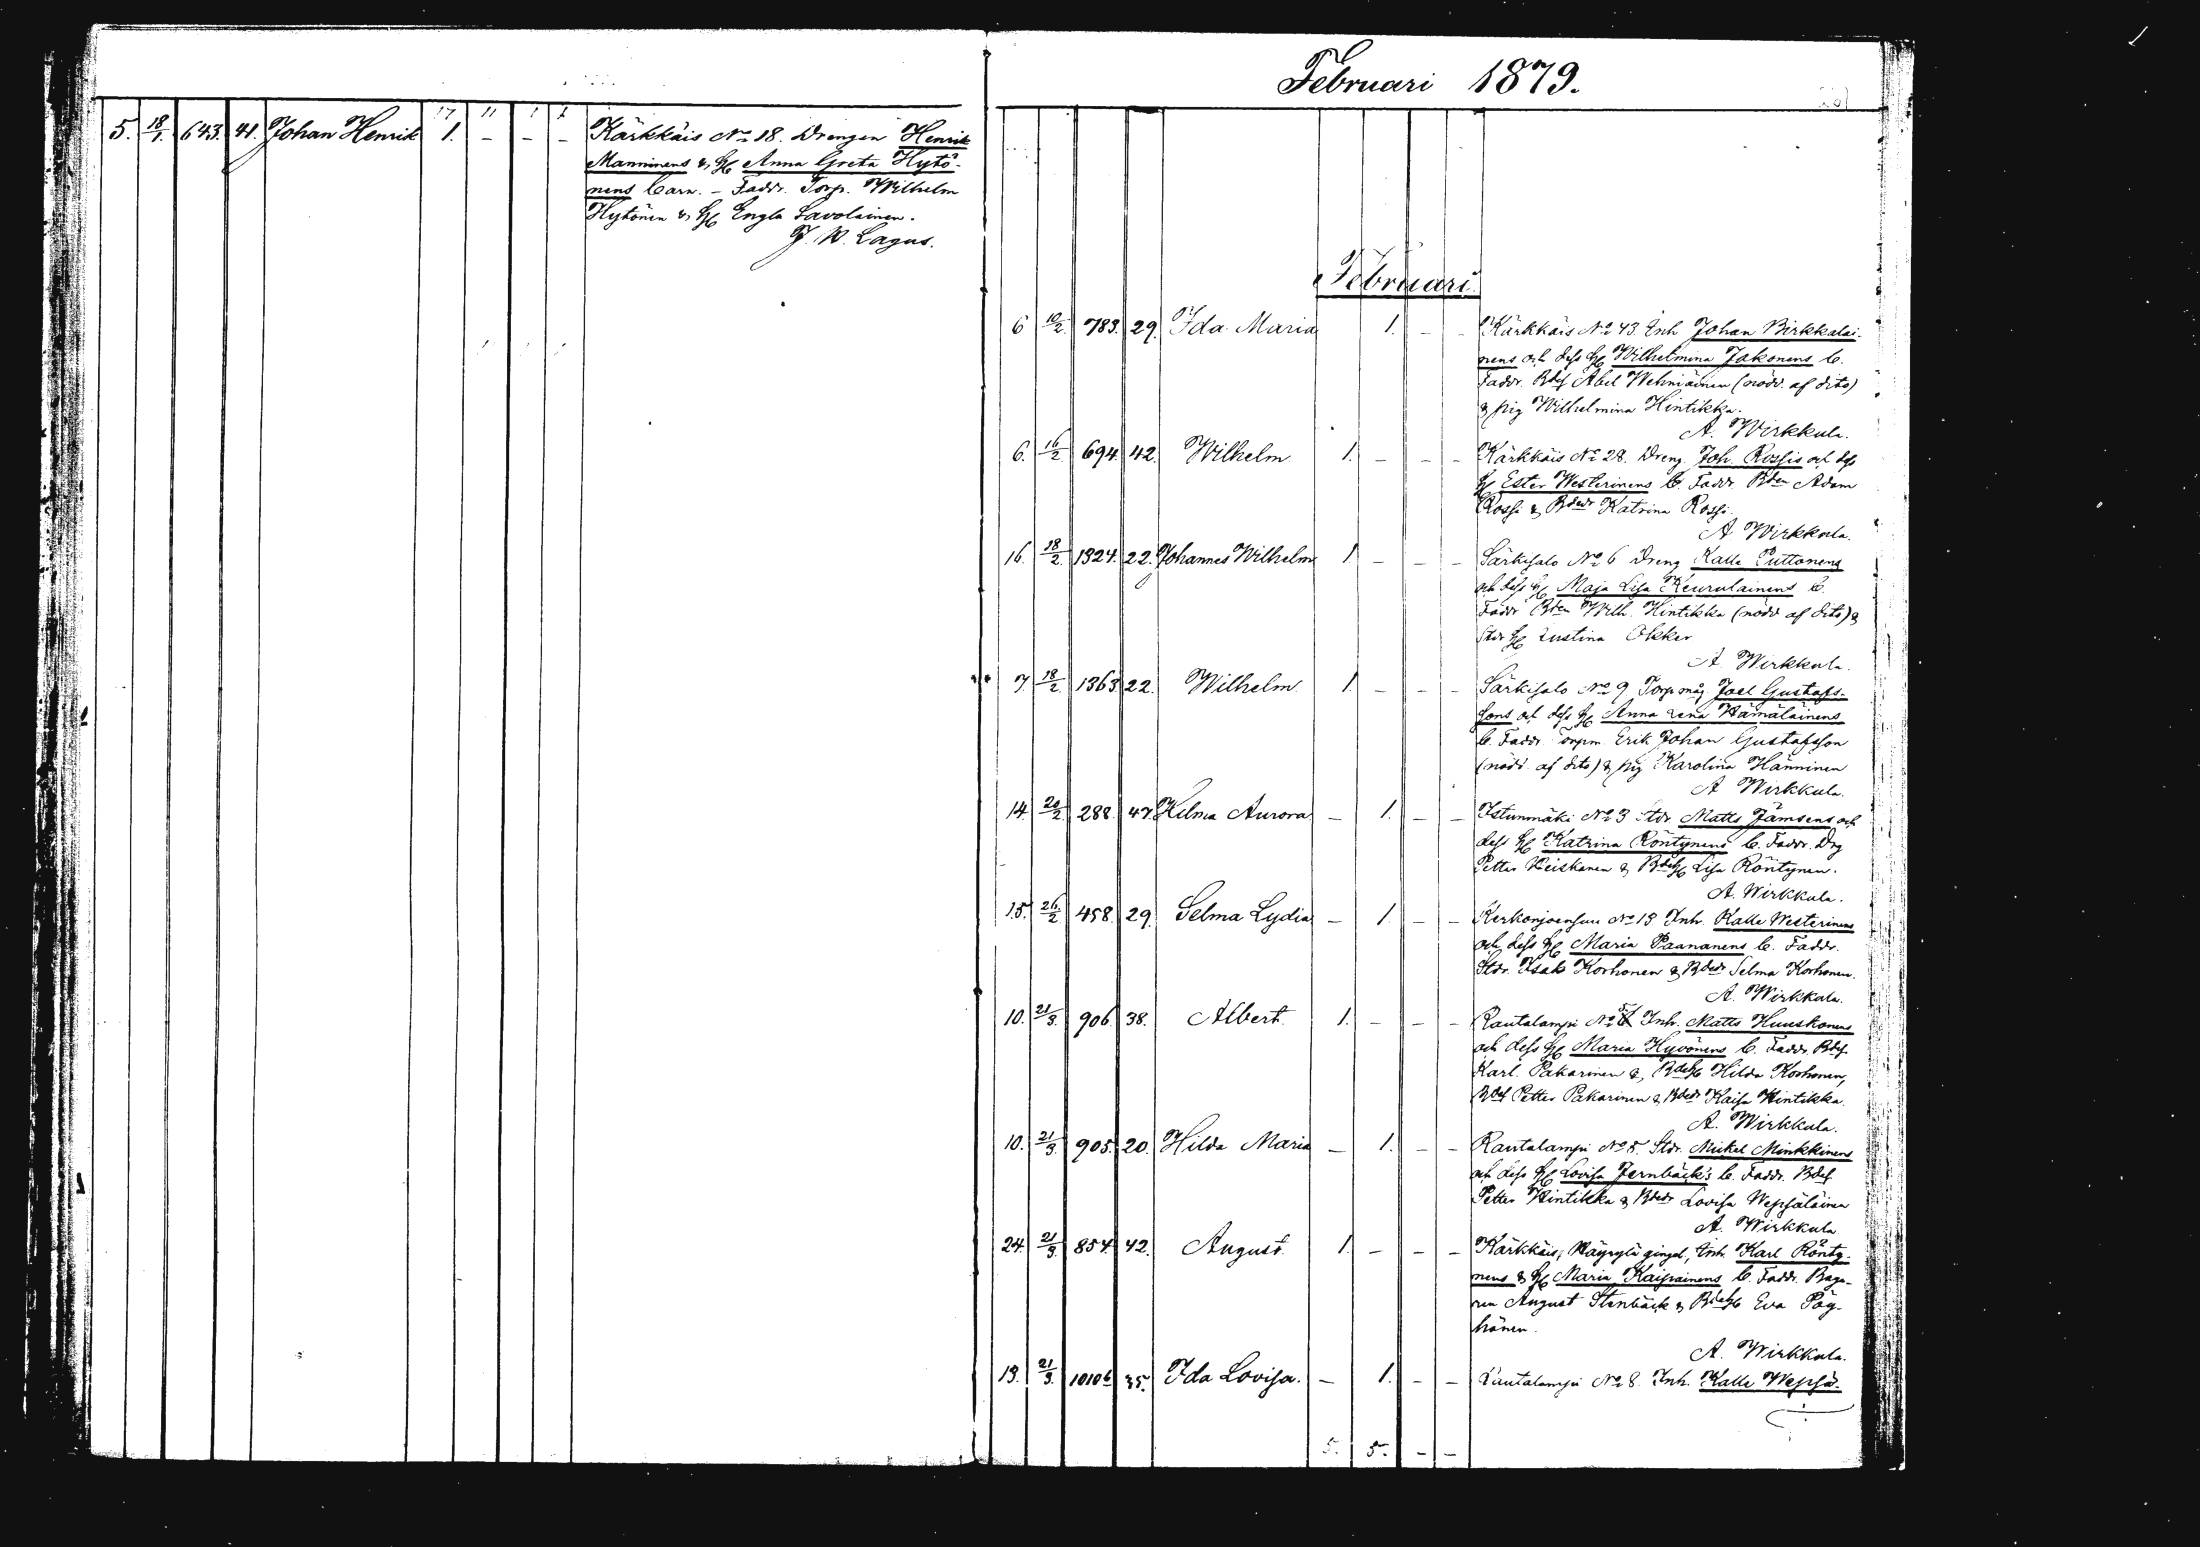 Februari 1879.
17 11 1 1
5. 18/1. 643. 41. Johan Henrik 1. - - - Kärkkäis No 18. Drengen Henrik
Manninens & H Anna Greta Hytö-
nens barn. - Faddr. Torp. Wilhelm
Hytönen & H Engla Savolainen.
J. W. Lagus.
Februari.
6 10/2 783. 29. Ida Maria 1. - - Kärkkäis No 43. Inh Johan Pirkkalai-
nens och dess H Wilhelmina Jakonens b.
Faddr. Bdes Abel Wehniäinen (nödd. af dito)
& pig Wilhelmina Hintikka.
A. Wirkkula.
6. 16/2 694. 42. Wilhelm 1. - - - Kärkkäis No 28. Dreng Joh. Rossis och dess
H Ester Westerinens b. Faddr. Bden Adam
Rossi & Bdedr Katrina Rossi.
A Wirkkula.
16. 18/2. 1324. 22. Johannes Wilhelm 1. - - - Särkisalo No 6 Dreng Kalle Puttonens
och dess H Maja Lisa Keurulainens b.
Faddr Bden Wilh. Hintikka (nödd af dito) &
Stdr H Justina Okker
A. Wirkkula.
7. 18/2. 1363. 22. Wilhelm 1. - - - Särkisalo No 9 Torp måg Joel Gustafs-
sons och dess H Anna Lena Hämäläinens
b. Faddr Torpm Erik Johan Gustafsson
(nödd. af dito) & pig Karolina Hänninen
A Wirkkula.
14. 20/2. 288. 47. Hilma Aurora - 1. - - Istunmäki No 3 Stdr Matts Jämsens och
dess H Katrina Röntynens b. Faddr. Drg
Petter Heiskanen & BdesH Lisa Röntynen.
A. Wirkkula.
15. 26/2. 458. 29. Selma Lydia - 1 - - Kerkonjoensuu No 13 Inh. Kalle Westerinens
och dess H Maria Paananens b. Faddr.
Stdr. Isak Korhonen & Bdedr Selma Korhonen.
A. Wirkkula.
10. 21/3. 906. 38. Albert. 1. - - - Rautalampi No Inh. Matts Huuskonens
och dess H Maria Hyvönens b. Faddr. Bdes
Karl. Pakarinen & BdesH Hilda Korhonen,
Bdes Petter Pakarinen & Bdedr Kaisa Hintikka.
A. Wirkkula.
10. 21/3. 905. 20. Hilda Maria - 1. - - Rautalampi No 5. Stdr. Mickel Minkkinens
och dess H Lovisa Jernbäck's b. Faddr. Bdes
Petter Hintikka & Bdedr Lovisa Wepsäläinen
A. Wirkkula
24. 21/3. 854. 42. August. 1. - - - Kärkkäis, Käyrylä gingel, Inh. Karl Rönty-
nens & H Maria Kaipainens b. Faddr. Baga-
ren August Stenbäck & BdesH Eva Pöy-
hönen.
A. Wirkkula.
13. 21/3. 1010b 35. Ida Lovisa. - 1. - - Rautalampi No 8. Inh. Kalle Wepsä-
5. 5. - -